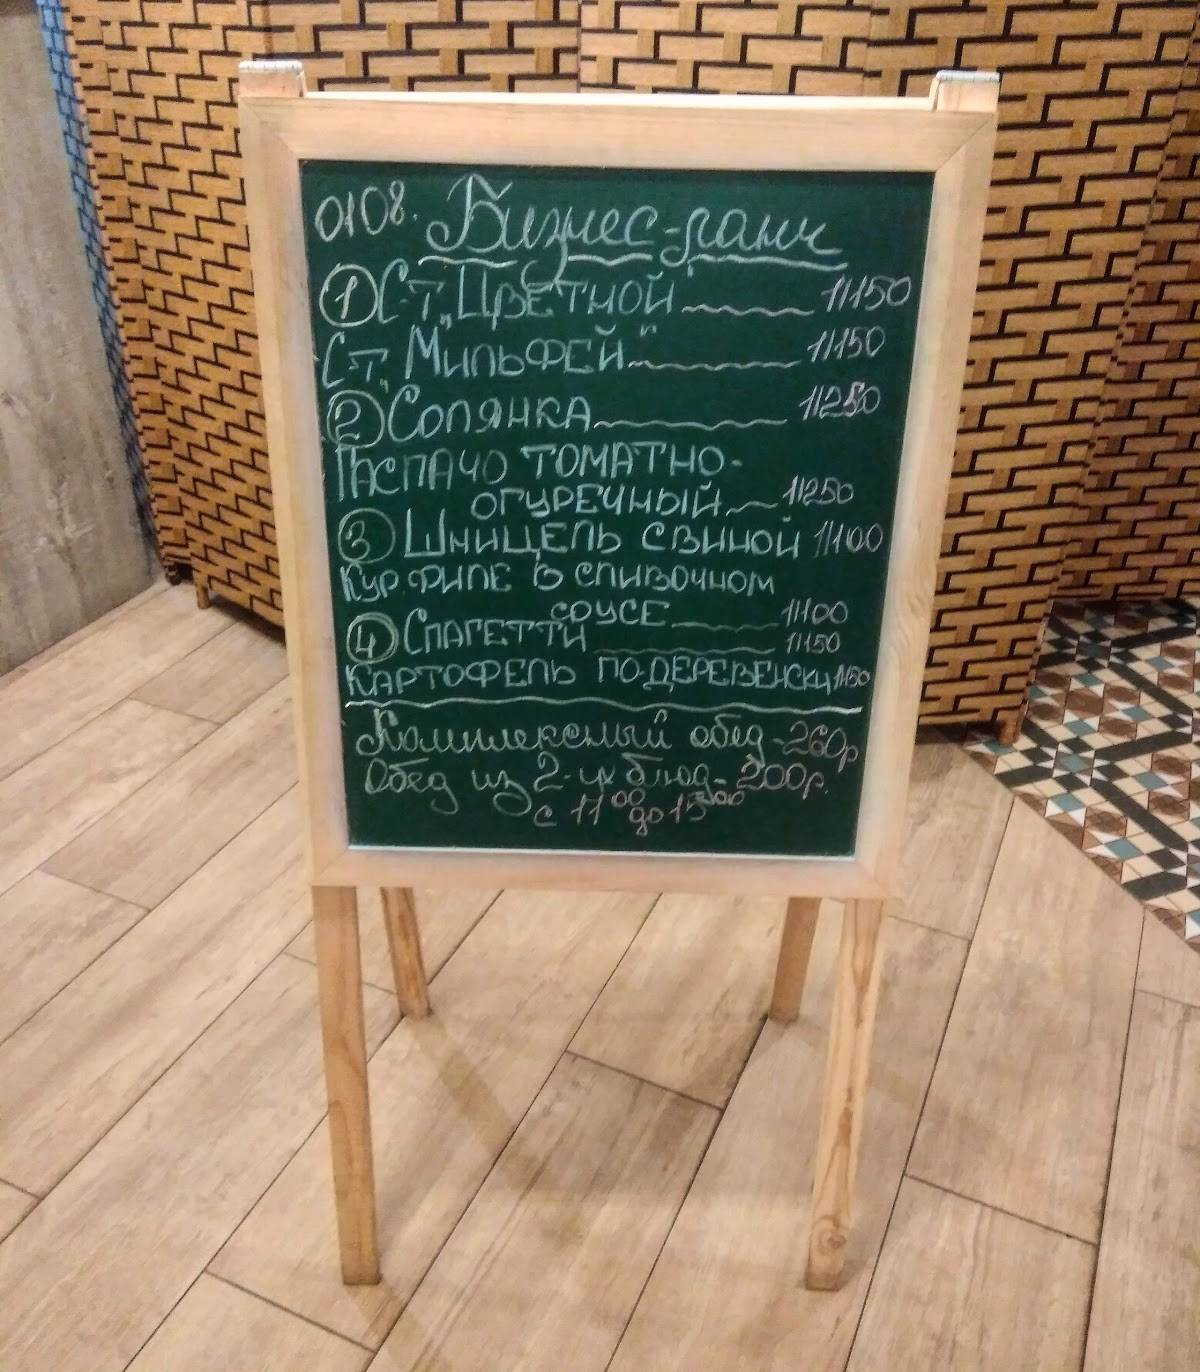 0108. Бизнес-ланч
① С-т „Цветной" 1/150
С-т „Мильфей" 1/150
② Солянка 1/250
Гаспачо томатно-
огуречный 1/250
③ Шницель свиной 1/100
Кур. филе в сливочном
соусе 1/100
④ Спагетти 1/150
Картофель по-деревенски 1/150
Комплексный обед - 260р
Обед из 2-их блюд - 200р.
с 11⁰⁰ до 15⁰⁰